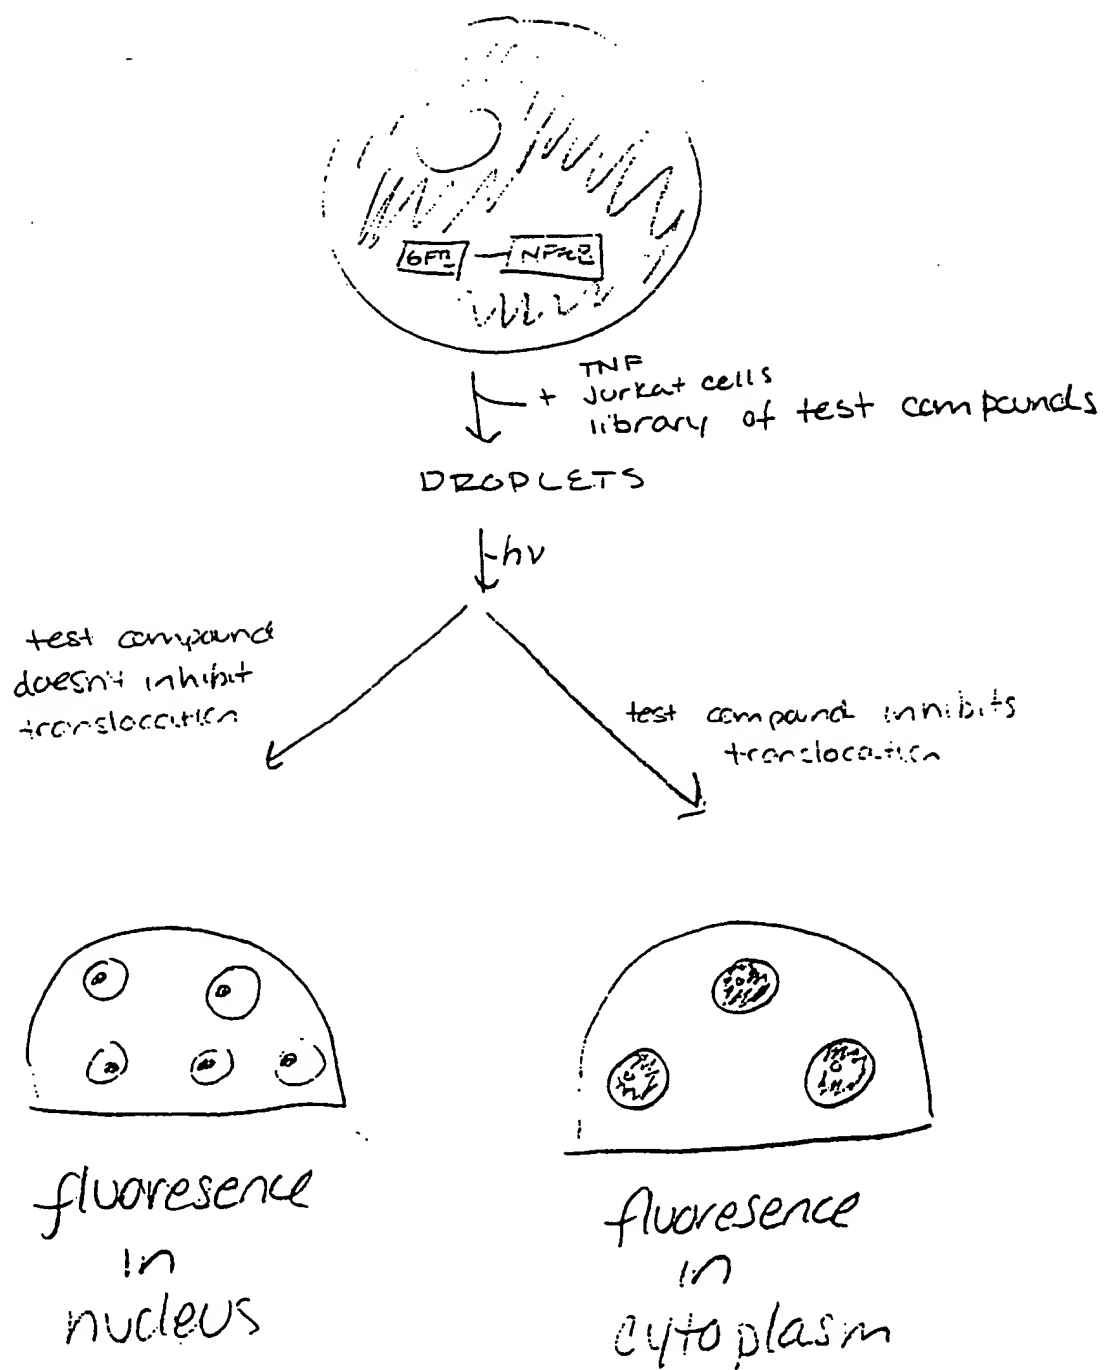 GFP
NFκB
TNF
+ Jurkat cells
library of test compounds
DROPLETS
hν
test compound
doesn't inhibit
translocation
test compound inhibits
translocation
fluoresence
in
nucleus
fluoresence
in
cytoplasm